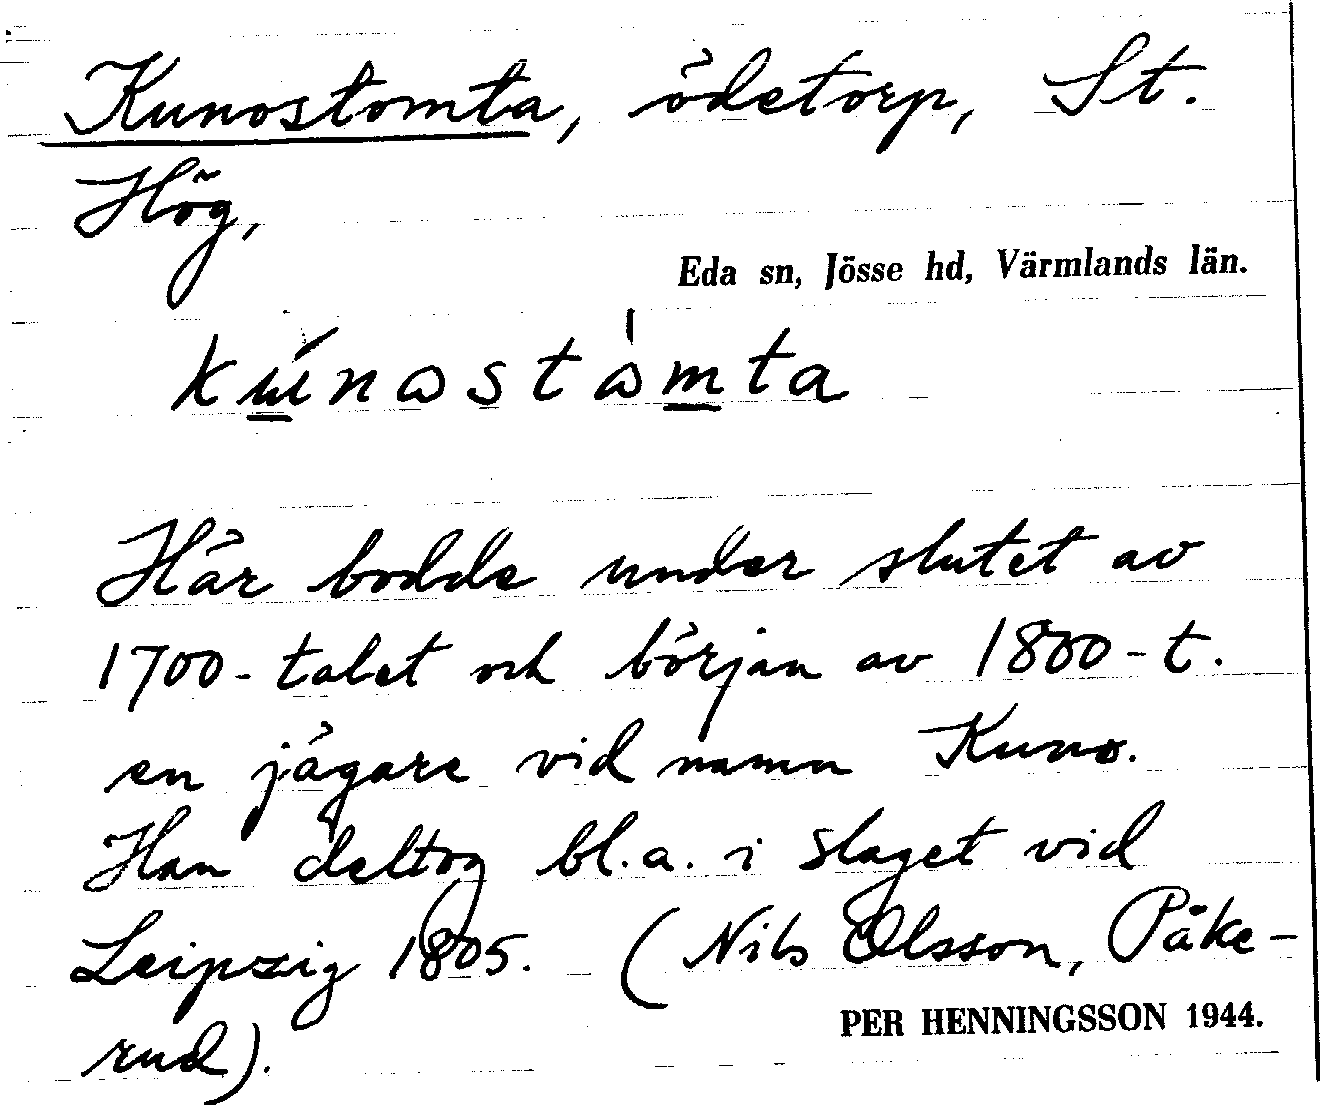 Kunostomta, ödetorp, St.
Hög,
Eda sn, Jösse hd, Värmlands län.
kúnɷstɷ̀mta
Här bodde under slutet av
1700-talet och början av 1800-t.
en jägare vid namn Kuno.
Han deltog bl.a. i slaget vid
Leipzig 1805. (Nils Olsson, Påke-
rud).
PER HENNINGSSON 1944.